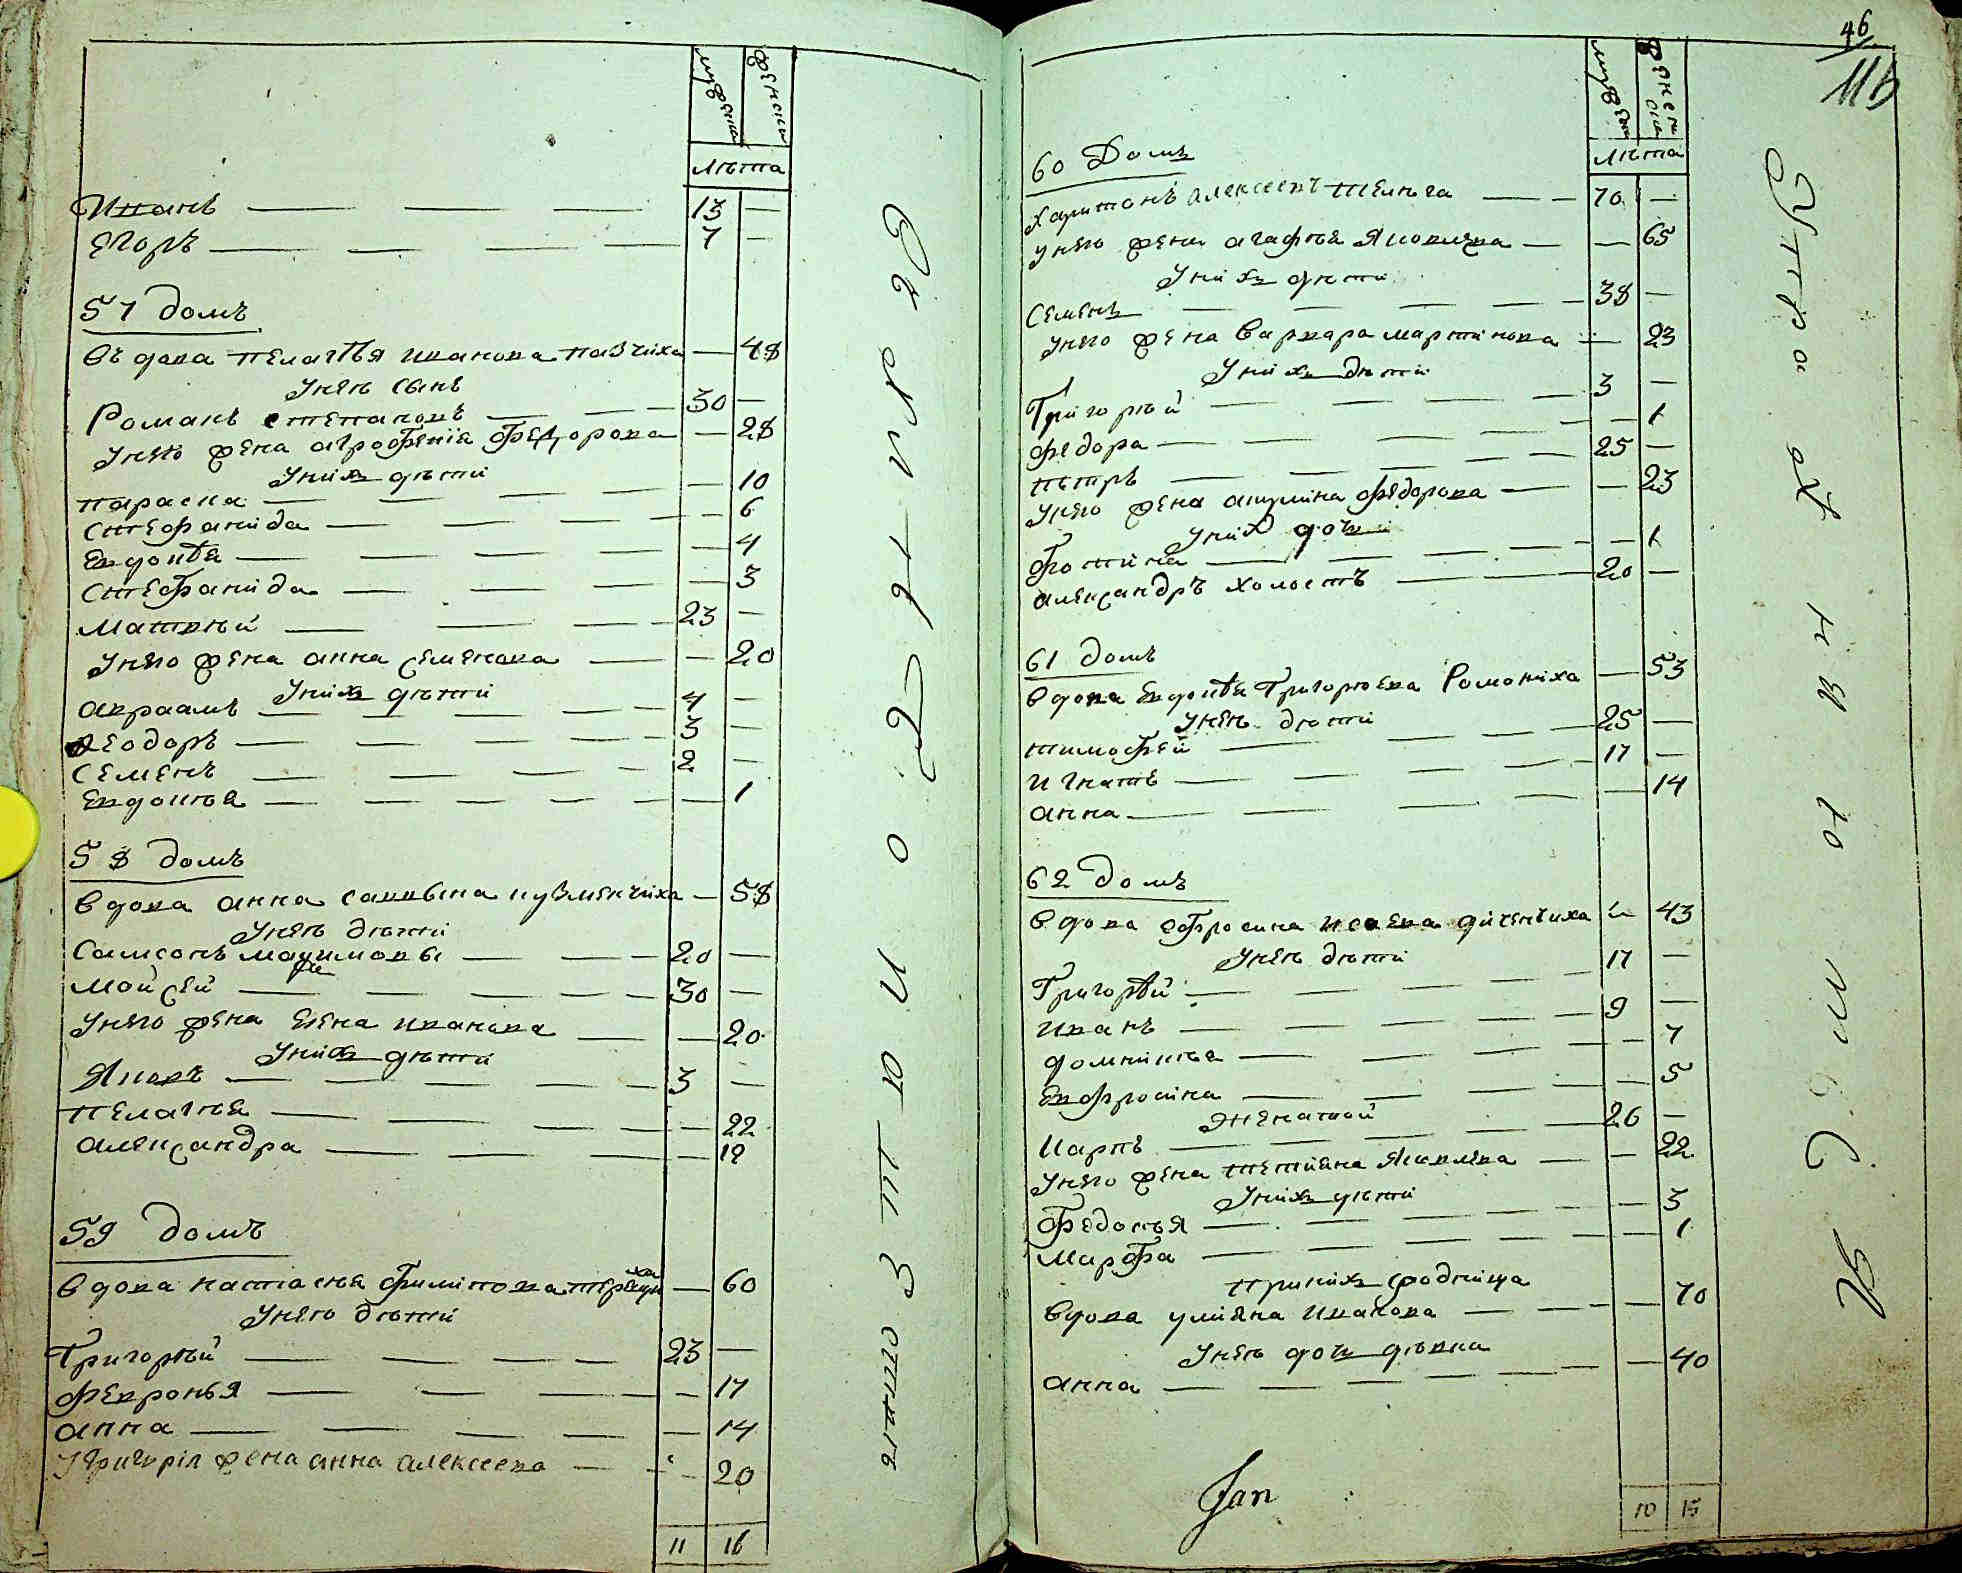 мужеска
женска
лѣта
Иванъ — — — 13 —
Егоръ — — — 7 —
57 домъ
въдова пелагѣя иванова пазчиха — 48
унея сынъ
Романъ степановъ — — — 30 —
унего жена агрофенiя федорова — 28
унихъ дѣти
параска — — — 10
стефанида — — — 6
Евдокѣя — — — 4
стефанида — — — 3
Матвѣй — — — 23 —
унего жена анна семенова — — 20
унихъ дѣти
авраамъ — — — 4 —
Феодоръ — — — 3 —
семенъ — — — 2 —
Евдокѣя — — — 1
58 домъ
вдова анна саввына кузменчиха — 58
унея дѣти
самсонъ максимовы — — 20 —
Мойсей — — — 30 —
унего жена Елена иванова — — 20
унихъ дѣти
Яковъ — — — 3 —
пелагѣя — — — 22
александра — — — 12
59 домъ
вдова настасѣя филипова — 60
унего дѣти
Григорѣй — — — 23 —
февронья — — — 17
анна — — — 14
Угригорiя жена анна алексеева — — 20
11 16
46
116
мужеска
женска
лѣта
60 Домъ
Харитонъ алексеевъ телѣга — — 70 —
унего жена агафѣя Яковлева — — 65
унихъ дѣти
семенъ — — — 38 —
унего жена варвара мартинова — — 23
унихъ дѣти
Григорѣй — — — 3 —
федора — — — 1
пѣтръ — — — 25 —
унего жена акулина федорова — — 23
унихъ дочь
фотина — — — 1
александръ холостъ — — 20 —
61 домъ
вдова Евдокѣя Григорюева Романиха — 53
унея дѣти
тимофей — — — 25 —
игнатъ — — — 17 —
анна — — — 14
62 домъ
вдова ефросина исаева дяченчиха — 43
унея дѣти
Григорѣй — — — 17 —
иванъ — — — 9 —
домникѣа — — — 7
Евфросина — — — 5
женатой
карпъ — — — 26 —
унего жена тетияна Яковлева — — 22
унихъ дѣти
Федосья — — — 3
Марфа — — — 1
принихъ сродница
вдова улияна иванова — — — 70
унея дочь дѣвка
анна — — — 40
10 15